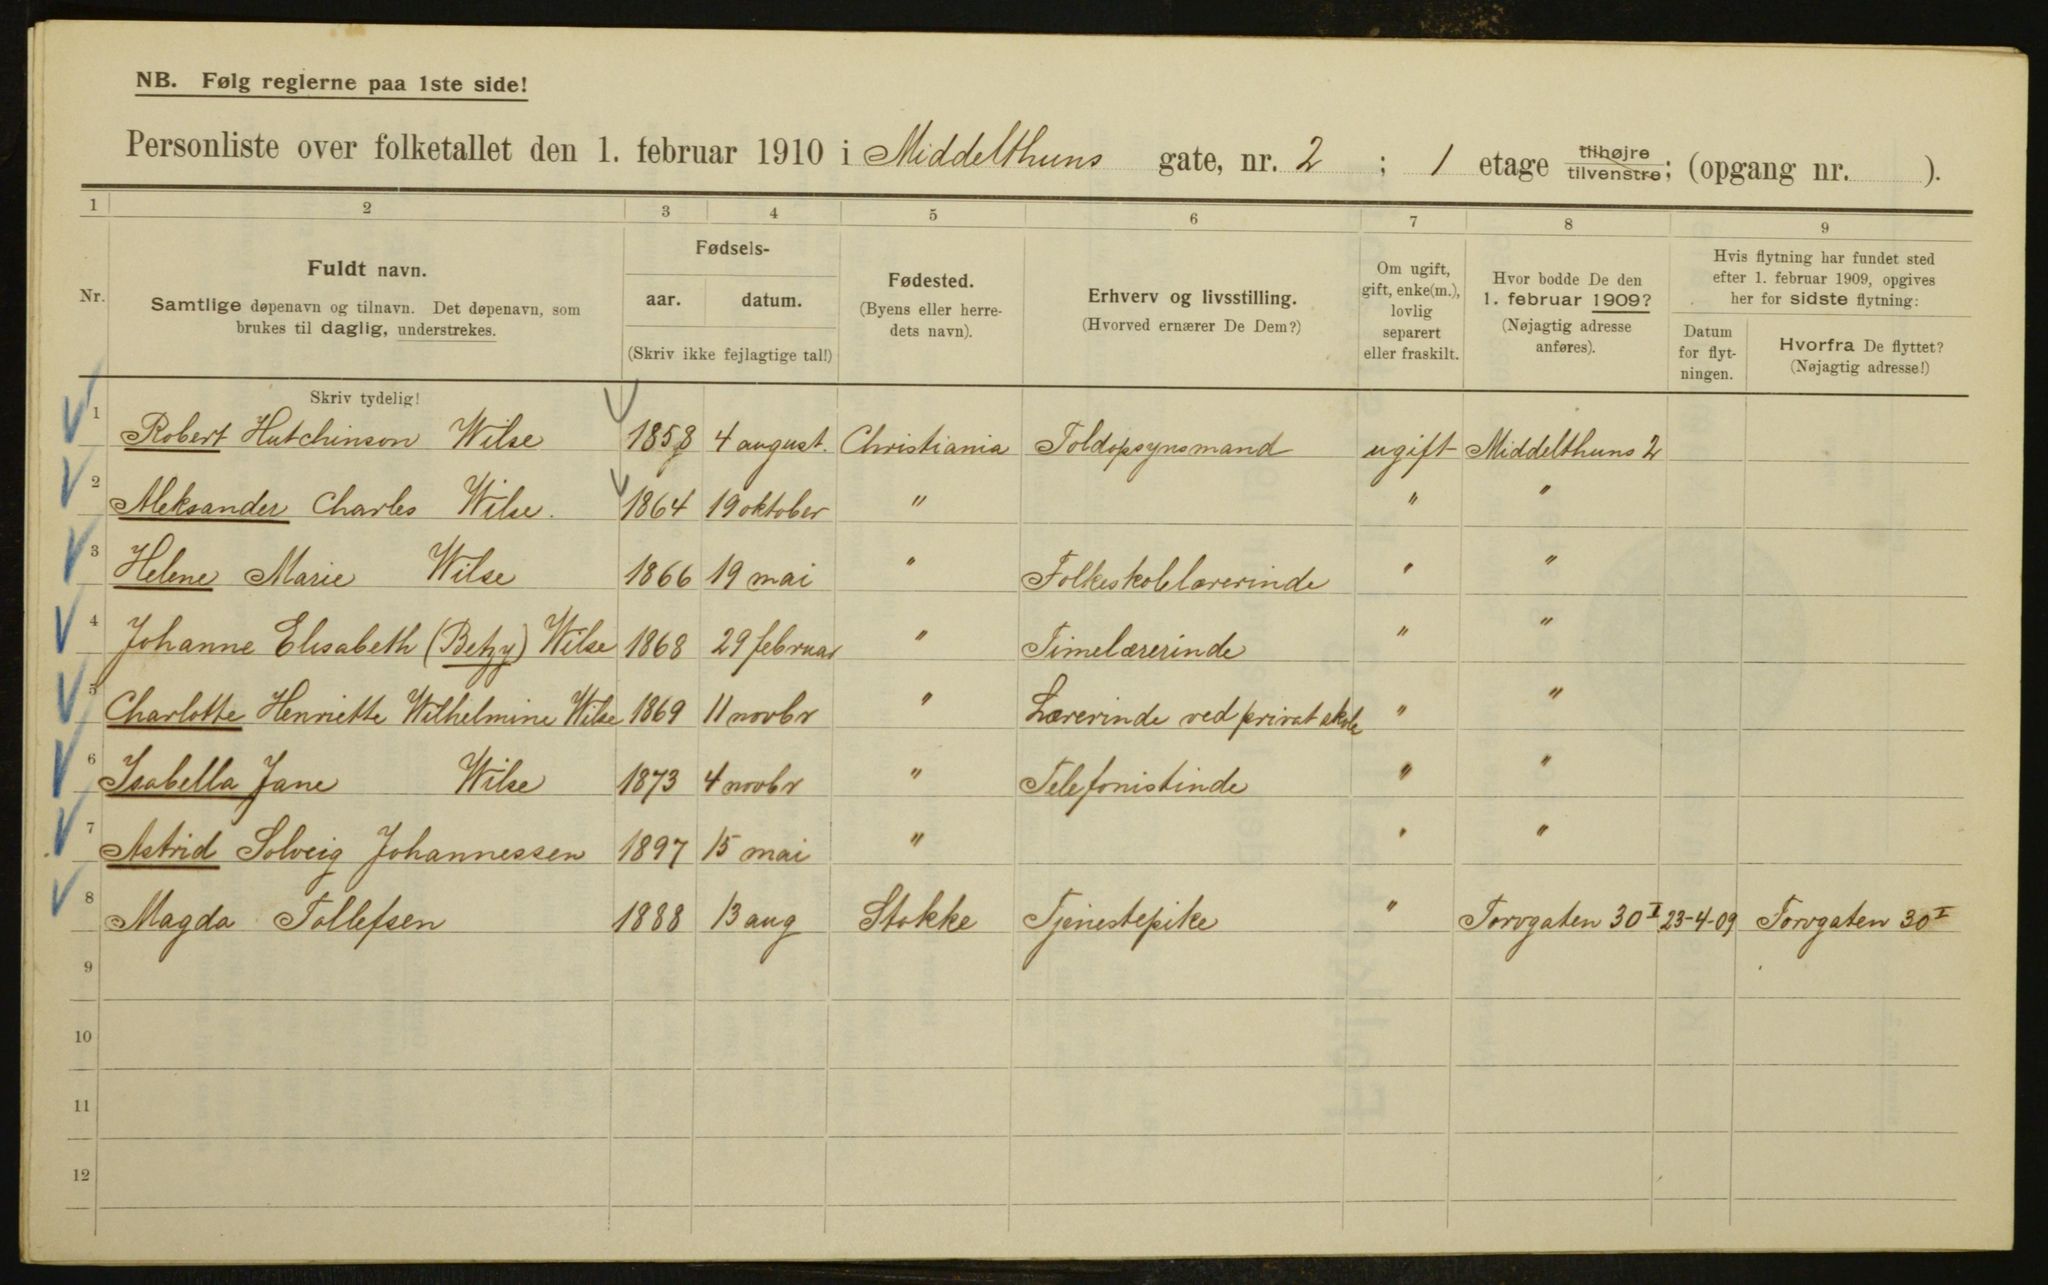 NB. Følg reglerne paa 1ste side!
Personliste over folketallet den 1. februar 1910 i Middelthuns gate, nr. 2 ; 1 etage tilhøjre tilvenstre; (opgang nr. ).
1 2 3 4 5 6 7 8 9
Nr.
Fuldt navn.
Samtlige døpenavn og tilnavn. Det døpenavn, som
brukes til daglig, understrekes.
Skriv tydelig!
Fødsels-
aar. datum.
(Skriv ikke fejlagtige tal!)
Fødested.
(Byens eller herre-
dets navn).
Erhverv og livsstilling.
(Hvorved ernærer De Dem?)
Om ugift,
gift, enke(m.),
lovlig
separert
eller fraskilt.
Hvor bodde De den
1. februar 1909?
(Nøjagtig adresse
anføres).
Hvis flytning har fundet sted
efter 1. februar 1909, opgives
her for sidste flytning:
Datum
for flyt-
ningen.
Hvorfra De flyttet?
(Nøjagtig adresse!)
1 Robert Hutchinson Wilse 1858 4 august. Christiania Toldopsynsmand ugift Middelthuns 2
2 Aleksander Charles Wilse. 1864 19 oktober " " "
3 Helene Marie Wilse 1866 19 mai " Folkeskolelærerinde " "
4 Johanne Elisabeth (Betzy) Wilse 1868 29 februar " Timelærerinde " "
5 Charlotte Henriette Wilhelmine Wilse 1869 11 novbr " Lærerinde ved privat skole " "
6 Isabella Jane Wilse 1873 4 novbr " Telefonistinde " "
7 Astrid Solveig Johannessen 1897 15 mai " " "
8 Magda Tollefsen 1888 13 aug Stokke Tjenestepike " Torvgaten 30 I 23-4-09 Torvgaten 30 I
9
10
11
12